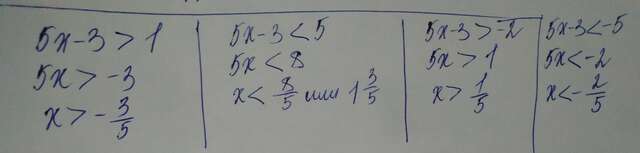 5x-3>1
5x>-3
x>-3/5
5x-3<5
5x<8
x<8/5 или 1 3/5
5x-3>-2
5x>1
x>1/5
5x-3<-5
5x<-2
x<-2/5